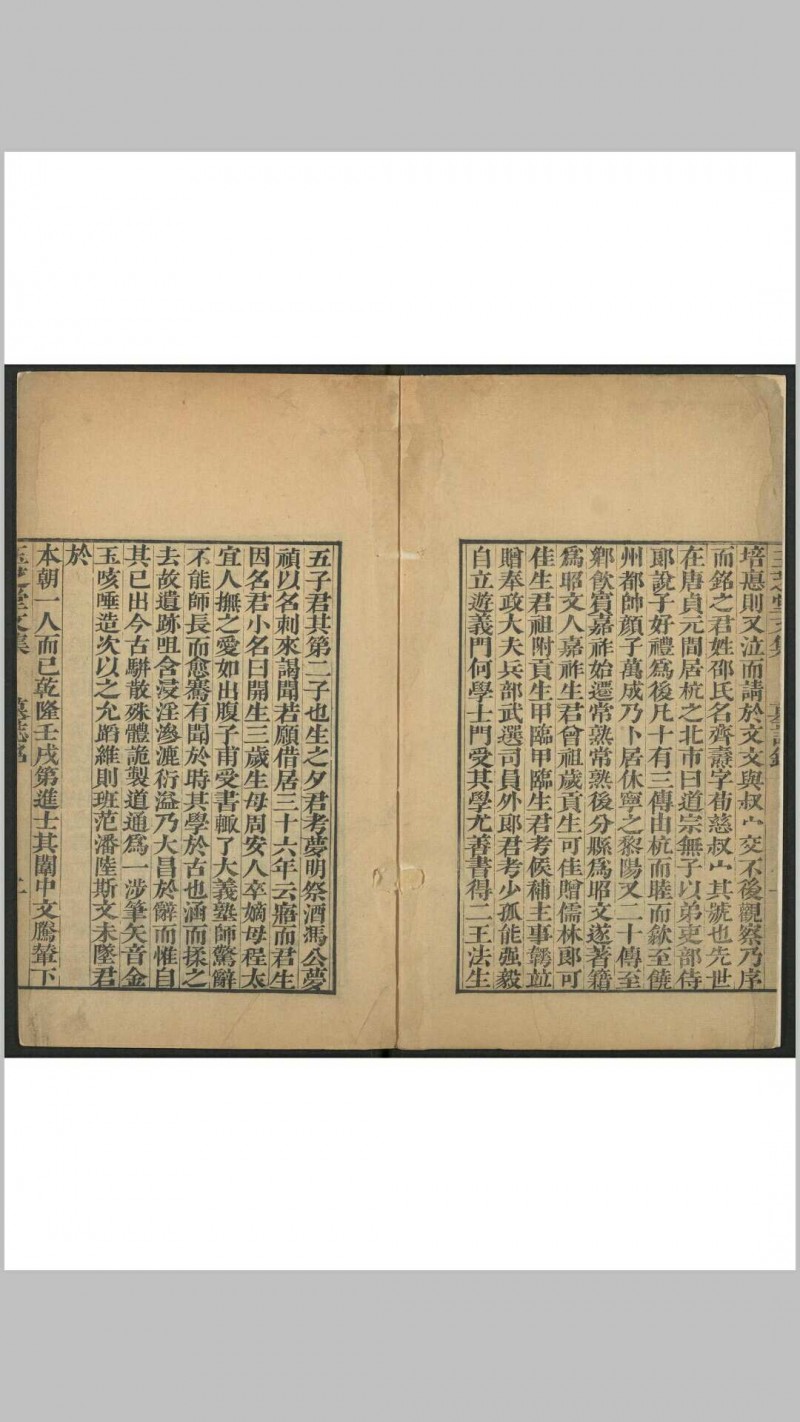 培惪則又泣而請於文文與叔宀交不後觀察乃序
而銘之君姓邵氏名齊燾字荀慈叔宀其號也先世
在唐貞元間居杭之北市曰道宗無子以弟吏部侍
郎說子好禮為後凡十有三傳由杭而睦而歙至饒
州都帥顔子萬成乃卜居休寧之黎陽又二十傳至
鄉飲賓嘉祚始遷常熟常熟後分縣爲昭文遂著籍
爲昭文人嘉祚生君曾祖歲貢生可佳贈儒林郎可
佳生君祖附貢生甲臨甲臨生君考候補主事韝竝
贈奉政大夫兵部武選司員外郎君考少孤能强毅
自立遊義門何學士門受其學尤善書得二王法生
五子君其第二子也生之夕君考夢明祭酒馮公夢
禎以名刺來謁閽若願借居三十六年云寤而君生
因名君小名曰開生三歲生母周安人卒嫡母程太
宜人撫之愛如出腹子甫受書輙了大義塾師驚辭
不能師長而愈騫有聞於時其學於古也涵而揉之
去故遺跡咀含浸淫滲漉衍溢乃大昌於辭而惟自
其已出今古駢散殊體詭製道通爲一涉筆矢音金
玉咳唾造次以之允蹈維則班范潘陸斯文未墜君
於
本朝一人而已乾隆壬戌第進士其闈中文騰輦下